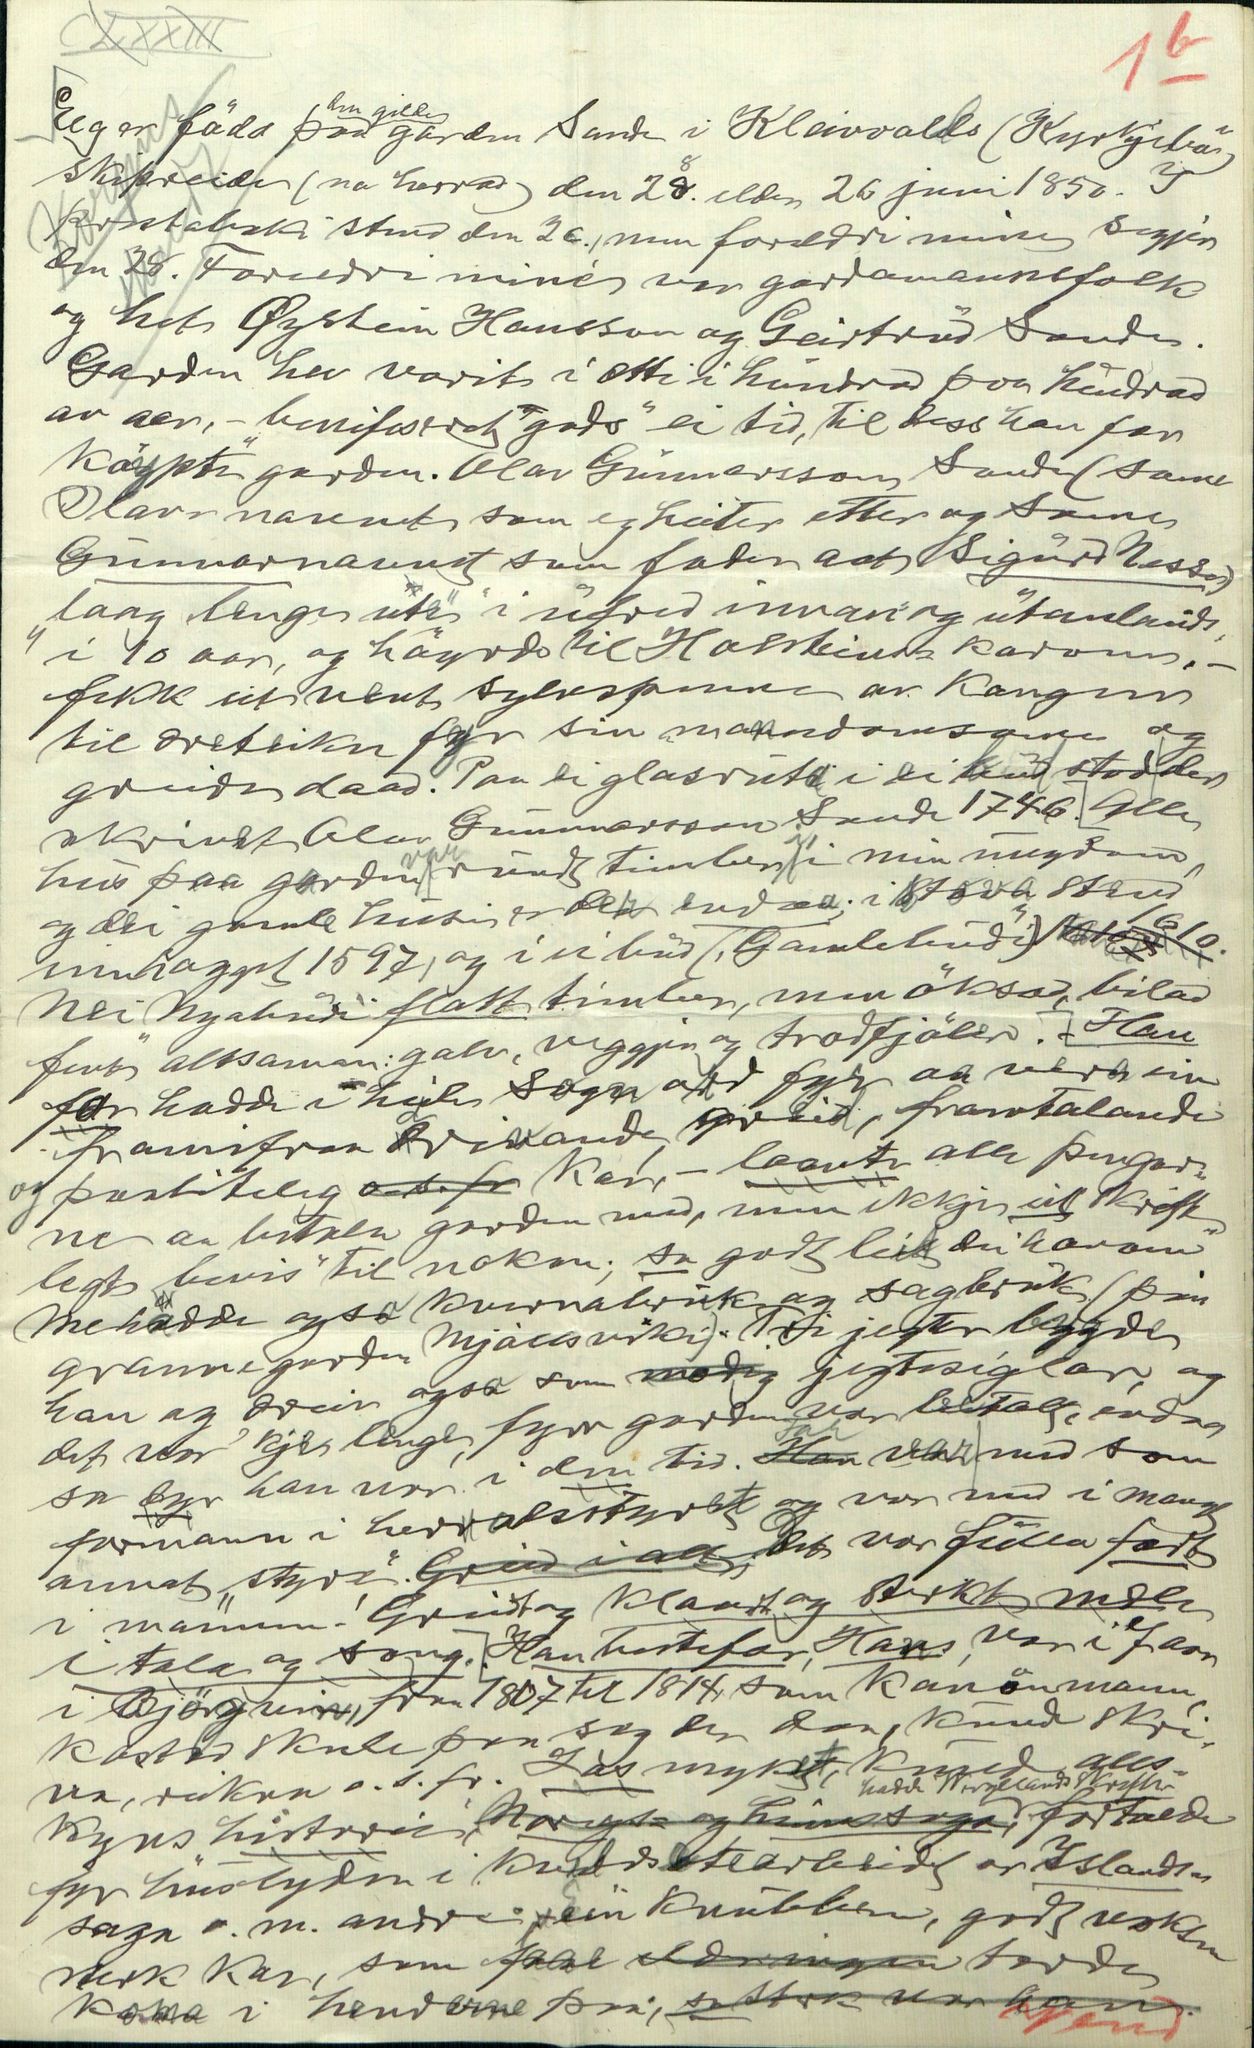 CXXXIII
1b
Eg er född paa den gilde garden Sande i Kleivvolls (Kyrkjebö)
skipreide (na herrad) den 28. elder 26 juni 1850. I
prestaboki stend den 26., men foreldri mine segjer
den 28. Foreldri mine var gardamannsfolk
og heit Øystein Hansson og Geirtrud Sande.
Garden hev vorit i ætti i hundrad paa hundrad
av aar, – benifisert "gods" ei tid, til dess han far
köypte garden. Olav Gunnarsson Sande (same
Olavs navnet som eg heiter etter og same
Gunnarnavnet som fader aat Sigurd Nesse)
laag lenge ute i ufred innan og utanlands,
i 10 aar, og höyrde til Holsteins karom, –
fekk eit vent sylvspenne av kongen
til æreteikn fyr sin manndomsame og
greide daad. Paa ei glasruta i ei stod der
skrivet Olav Gunnarsson Sande 1746. Alle
hus paa garden var rundt timber i min ungdom,
og dei gamle husi er der endaa; i stova stend
innhoggst 1597, og i ei bud (Gamlebudi) 1610.
Nei Nyabudi flatt timber, men öksad, bilad
fint altsaman: golv, veggjer og trodfjöler. Han
far hadde i heile Sogn ord fyr aa vera ein
framifraa drivande, greid, framtalande
og paaliteleg kar, – laante alle pengar-
ne aa betala garden med, men ikkje eit skrift-
legt bevis til nokon; so godt leit dei honom
Me hadde ogso kvernabruk og sagbruk (paa
grannegarden Mjölsviki). Tri jegter bygde
han og dreiv ogso som jegtesiglar, og
det var kje lenge, fyrr garden var betalt, endaa
so dyr han var i den tid. Far var med som
formann i herradsstyret og var med i mangt
annat "styre". Det var fullu fart
i mannen! Greidt og klaart og sterkt mæle
i tala og song. Han bestefar, Hans, var i 7 aar
i Björgvin, fraa 1807 til 1814, som kanonmann,
kostad skule paa seg der dan, kunde skri-
va, rekna o.s.fr. Las mykjet, kunde alls-
kyns historie, hadde Wergelands Skrifter fortalde
fyr huslyden i kveldsetearbeidet or Islands
saga o. m. andre; ein knubben, godt voksen
sterk kar, som torde
koma i henderne paa, so sterk var han.
Vend